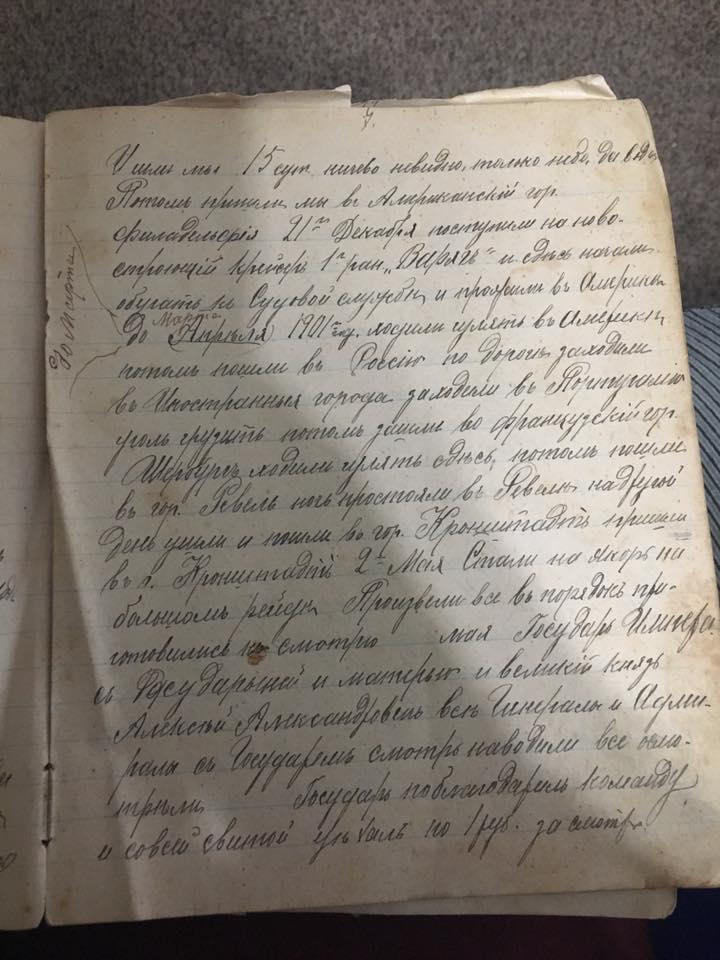 У шли мы 15 сут ничево невидно, только небо, да вода
Потомъ пришли мы въ Американскій гор.
филадельфія 21го Декабря поступили на ново-
строющій крейсеръ 1го ран. „Варягъ" и сдѣсь начали
обучать къ Судовой службы и прожили въ Америки
Марта
до Апрѣля 1901го г. ходили гулять въ Америки
до Марта
потомъ пошли въ Россію по дороги заходили
въ Иностранныя города заходили въ Португалію
уголь грузить потомъ зашли во французскій гор.
Шербургъ ходили гулять сдѣсь, потомъ пошли
въ гор. Ревель ночь простояли въ Ревелѣ на другой
день ушли и пошли въ гор. Кронштадтъ пришли
въ г. Кронштадтъ 2го Мая Стали на якорь на
большомъ рейди Произвели все въ порядокъ при-
готовились къ смотрю мая Государь Импера.
съ Государыней и матерью и великій князь
Алексѣй Александровичь всѣ Гинералы и Адми-
ралы съ Государемъ смотрь наводили все осмо-
трѣли Государь поблагодарилъ команду
и совсей свитой уѣхалъ по 1 руб. за смотръ